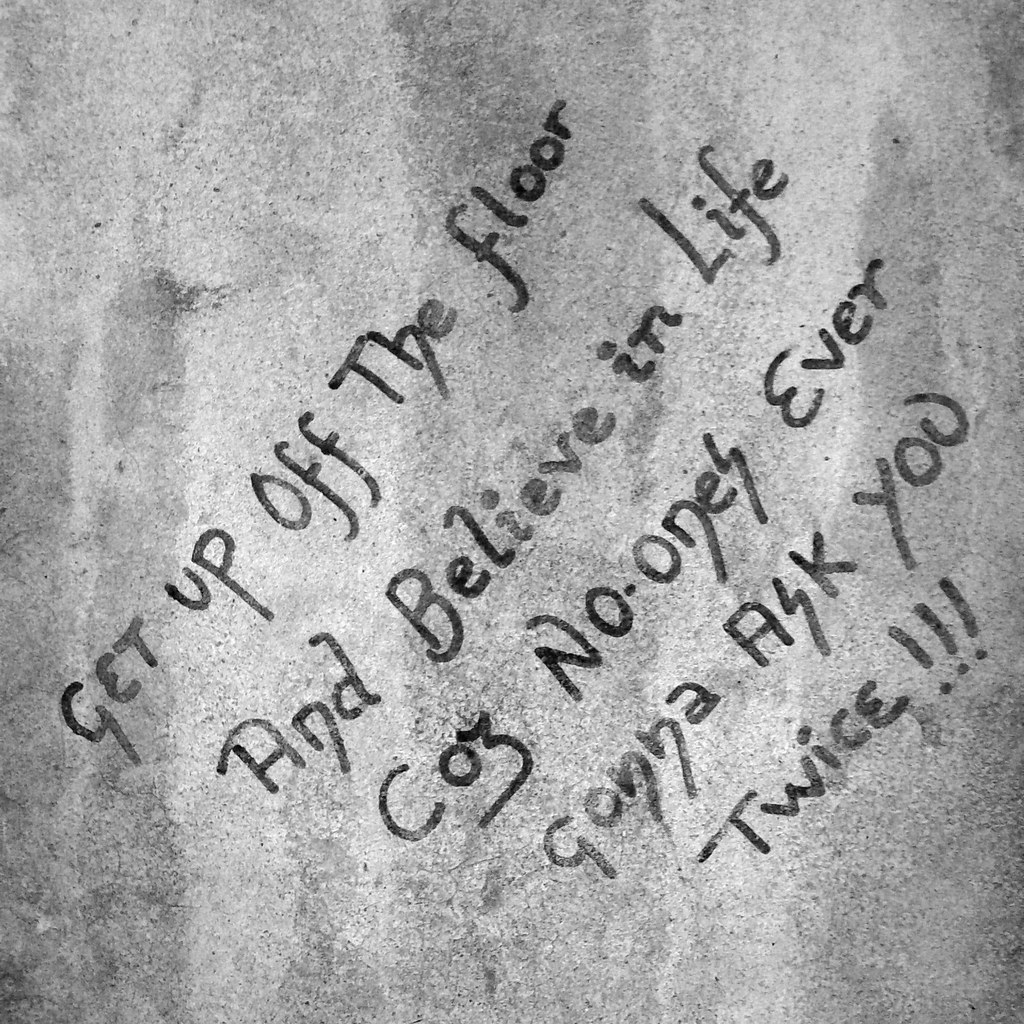 GET UP Off The floor
And Believe in Life
Coz No-Ones Ever
Gonna Ask YOU
Twice !!!